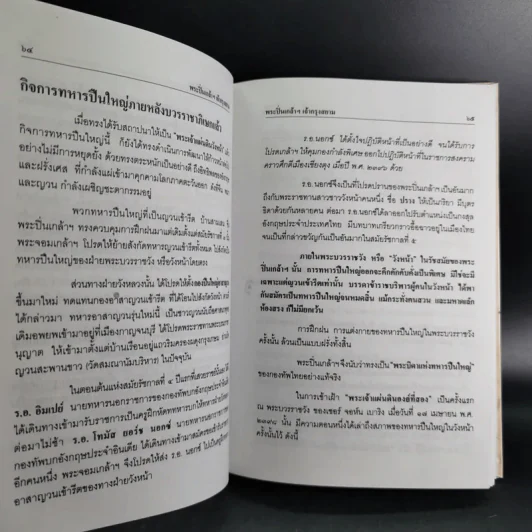 ๖๔
พระปิ่นเกล้าฯ
กิจการทหารปืนใหญ่ภายหลังบวรราชาภิเษกแล้ว
เมื่อทรงได้รับสถาปนาให้เป็น
กิจการทหารปืนใหญ่นี้ ก็ยังได้ทรงดำเนินการพัฒนาให้ก้าวหน้า
อย่างไม่มีการหยุดยั้ง ด้วยทรงตระหนักเป็นอย่างดี
และฝรั่งเศส ที่กำลังแผ่เข้ามาคุกคามโลกภาคตะวันออก
และญวน กำลังเผชิญชะตากรรมอยู่
พวกทหารปืนใหญ่ที่เป็นญวนเข้ารีต
พระปิ่นเกล้าฯ ทรงควบคุมการฝึกฝนมาแต่เดิมตั้งแต่สมัยรัชกาลที่
พระจอมเกล้าฯ โปรดให้ย้ายสังกัดทหารญวนเข้ารีตทั้งหมด
ทหารปืนใหญ่ของฝ่ายพระบวรราชวัง หรือวังหน้าโดยตรง
ส่วนทางฝ่ายวังหลวงนั้น ได้โปรดให้ตั้งกองปืนใหญ่
ขึ้นมาใหม่ ทดแทนกองอาสาญวนเข้ารีต ที่ได้โอนไปสังกัดวังหน้า
ได้กล่าวมา ทหารอาสาญวนรุ่นใหม่นี้ เป็นชาวญวนนับถือ
เดิมอพยพเข้ามาอยู่ที่เมืองกาญจนบุรี ได้โปรดพระราชทาน
นุญาต ให้เข้ามาตั้งบ้านเรือนอยู่แถวริมคลองผดุงกรุงเกษม
ญวนสะพานขาว (วัดสมณานัมบริหาร) ในปัจจุบัน
ในตอนต้นแห่งสมัยรัชกาลที่ ๔
ร.อ. อิมเปย์ นายทหารนอกราชการของกองทัพบกอังกฤษ
ได้เดินทางเข้ามารับราชการเป็นครูฝึกหัดทหารบกให้
ต่อมาไม่ช้า ร.อ. โทมัส ยอร์ช นอกซ์ นายทหารนอกราชการ
กองทัพบกอังกฤษประจำอินเดีย ได้เดินทางเข้ามาสมัครรับราชการ
อีกคนหนึ่ง พระจอมเกล้าฯ จึงโปรดให้ส่ง ร.อ. นอกซ์ ไปเป็นครู
อาสาญวนเข้ารีตของทางฝ่ายวังหน้า
พระปิ่นเกล้าฯ เจ้ากรุงสยาม
๖๕
ร.อ. นอกซ์ ได้ตั้งใจปฏิบัติหน้าที่เป็นอย่างดี จนได้รับการ
โปรดเกล้าฯ ให้คุมกองกำลังพิเศษ ออกไปปฏิบัติหน้าที่ในราชการสงคราม
คราวศึกตีเมืองเชียงตุง เมื่อปี พ.ศ. ๒๓๙๖ ด้วย
ร.อ. นอกซ์จึงเป็นที่โปรดปรานของพระปิ่นเกล้าฯ เป็นอันมาก
ถึงกับพระราชทานสาวชาววังหน้าคนหนึ่ง ชื่อ ปราง ให้เป็นภริยา มีบุตร
ธิดาด้วยกันหลายคน ต่อมา ร.อ. นอกซ์ได้ลาออกไปรับตำแหน่งเป็นกงสุล
อังกฤษประจำประเทศไทย มีบทบาทเกรียวกราวอื้อฉาวอยู่ในเมืองไทย
จนเป็นที่กล่าวขวัญกันเป็นอันมากในสมัยรัชกาลที่ ๕
ภายในพระบวรราชวัง หรือ "วังหน้า" ในรัชสมัยของพระ
ปิ่นเกล้าฯ นั้น การทหารปืนใหญ่ออกจะคึกคักกันครั้งเป็นพิเศษ มิใช่จะมี
เฉพาะแต่ญวนเข้ารีตเท่านั้น บรรดาข้าราชบริพารผู้คนในวังหน้า ได้พา
กันสมัครเป็นทหารปืนใหญ่จนหมดสิ้น แม้กระทั่งคนสวน และมหาดเล็ก
ห้องสรง ก็ไม่มียกเว้น
การฝึกฝน การแต่งกายของทหารปืนใหญ่ในพระบวรราชวัง
ครั้งนั้น ล้วนเป็นแบบฝรั่งทั้งสิ้น
พระปิ่นเกล้าฯ จึงนับว่าทรงเป็น "พระบิดาแห่งทหารปืนใหญ่"
ของกองทัพไทยอย่างแท้จริง
ในการเข้าเฝ้า "พระเจ้าแผ่นดินองค์ที่สอง" เป็นครั้งแรก
ณ พระบวรราชวัง ของเซอร์ จอห์น เบาริง เมื่อวันที่ ๑๘ เมษายน พ.ศ.
๒๓๙๘ นั้น มีความตอนหนึ่งได้เล่าถึงสภาพของทหารปืนใหญ่ในวังหน้า
ครั้งนั้นไว้ ดังนี้